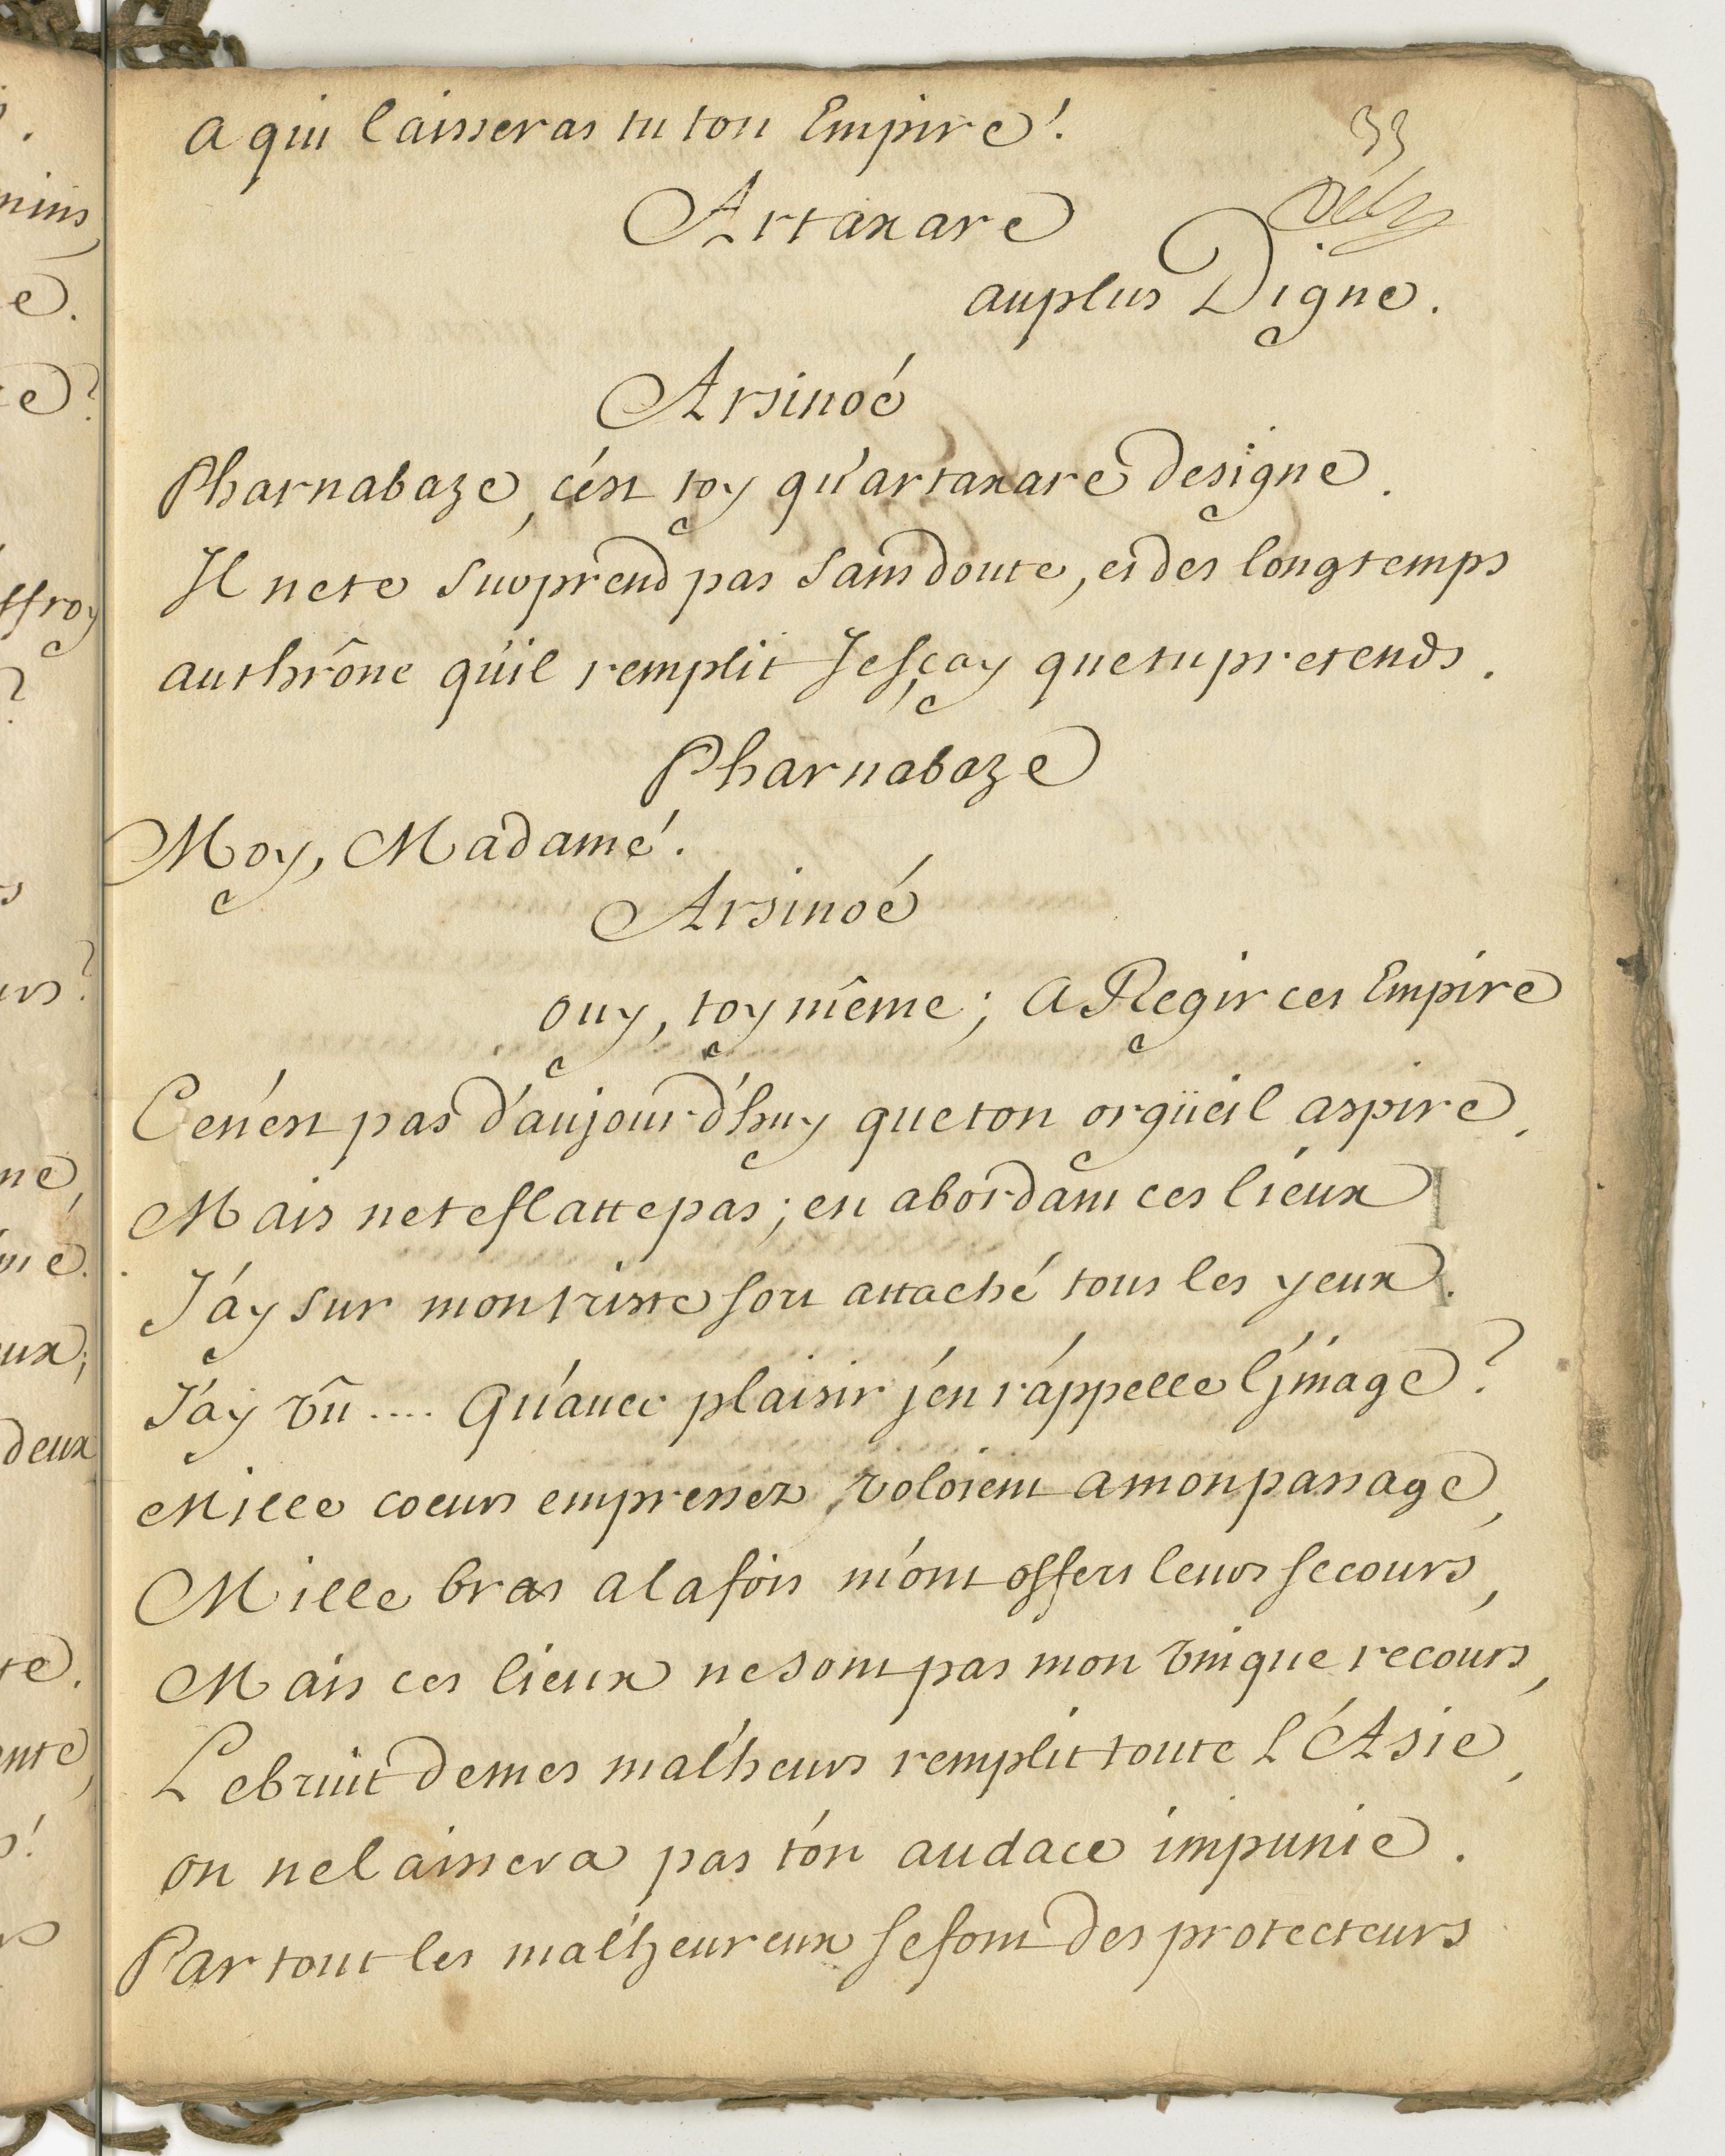 A qui laisseras tu ton Empire!
33
Artaxare
au plus Digne.
Arsinoé
Pharnabaze, c'est toy qu'artaxare designe.
Il ne te surprend pas sans doute, et des longtemps
au thrône qu'il remplit Je sçay que tu pretends.
Pharnabaze
Moy, Madame!
Arsinoé
ouy, toy même; A Regir cet Empire
Ce n'est pas d'aujourd'huy que ton orgüeil aspire,
Mais ne te flatte pas; en abordant ces lieux
J'ay sur mon triste sort attaché tous les yeux.
J'ay vû .... Qu'avec plaisir j'en rappelle l'jmage?
Mille coeurs empressez, voloient a mon passage,
Mille bras a la fois m'ont offert leurs secours,
Mais ces lieux ne sont pas mon vnique recours,
Le bruit de mes malheurs remplit toute L'Asie,
on ne laissera pas ton audace impunie.
Par tout les malheureux se font des protecteurs